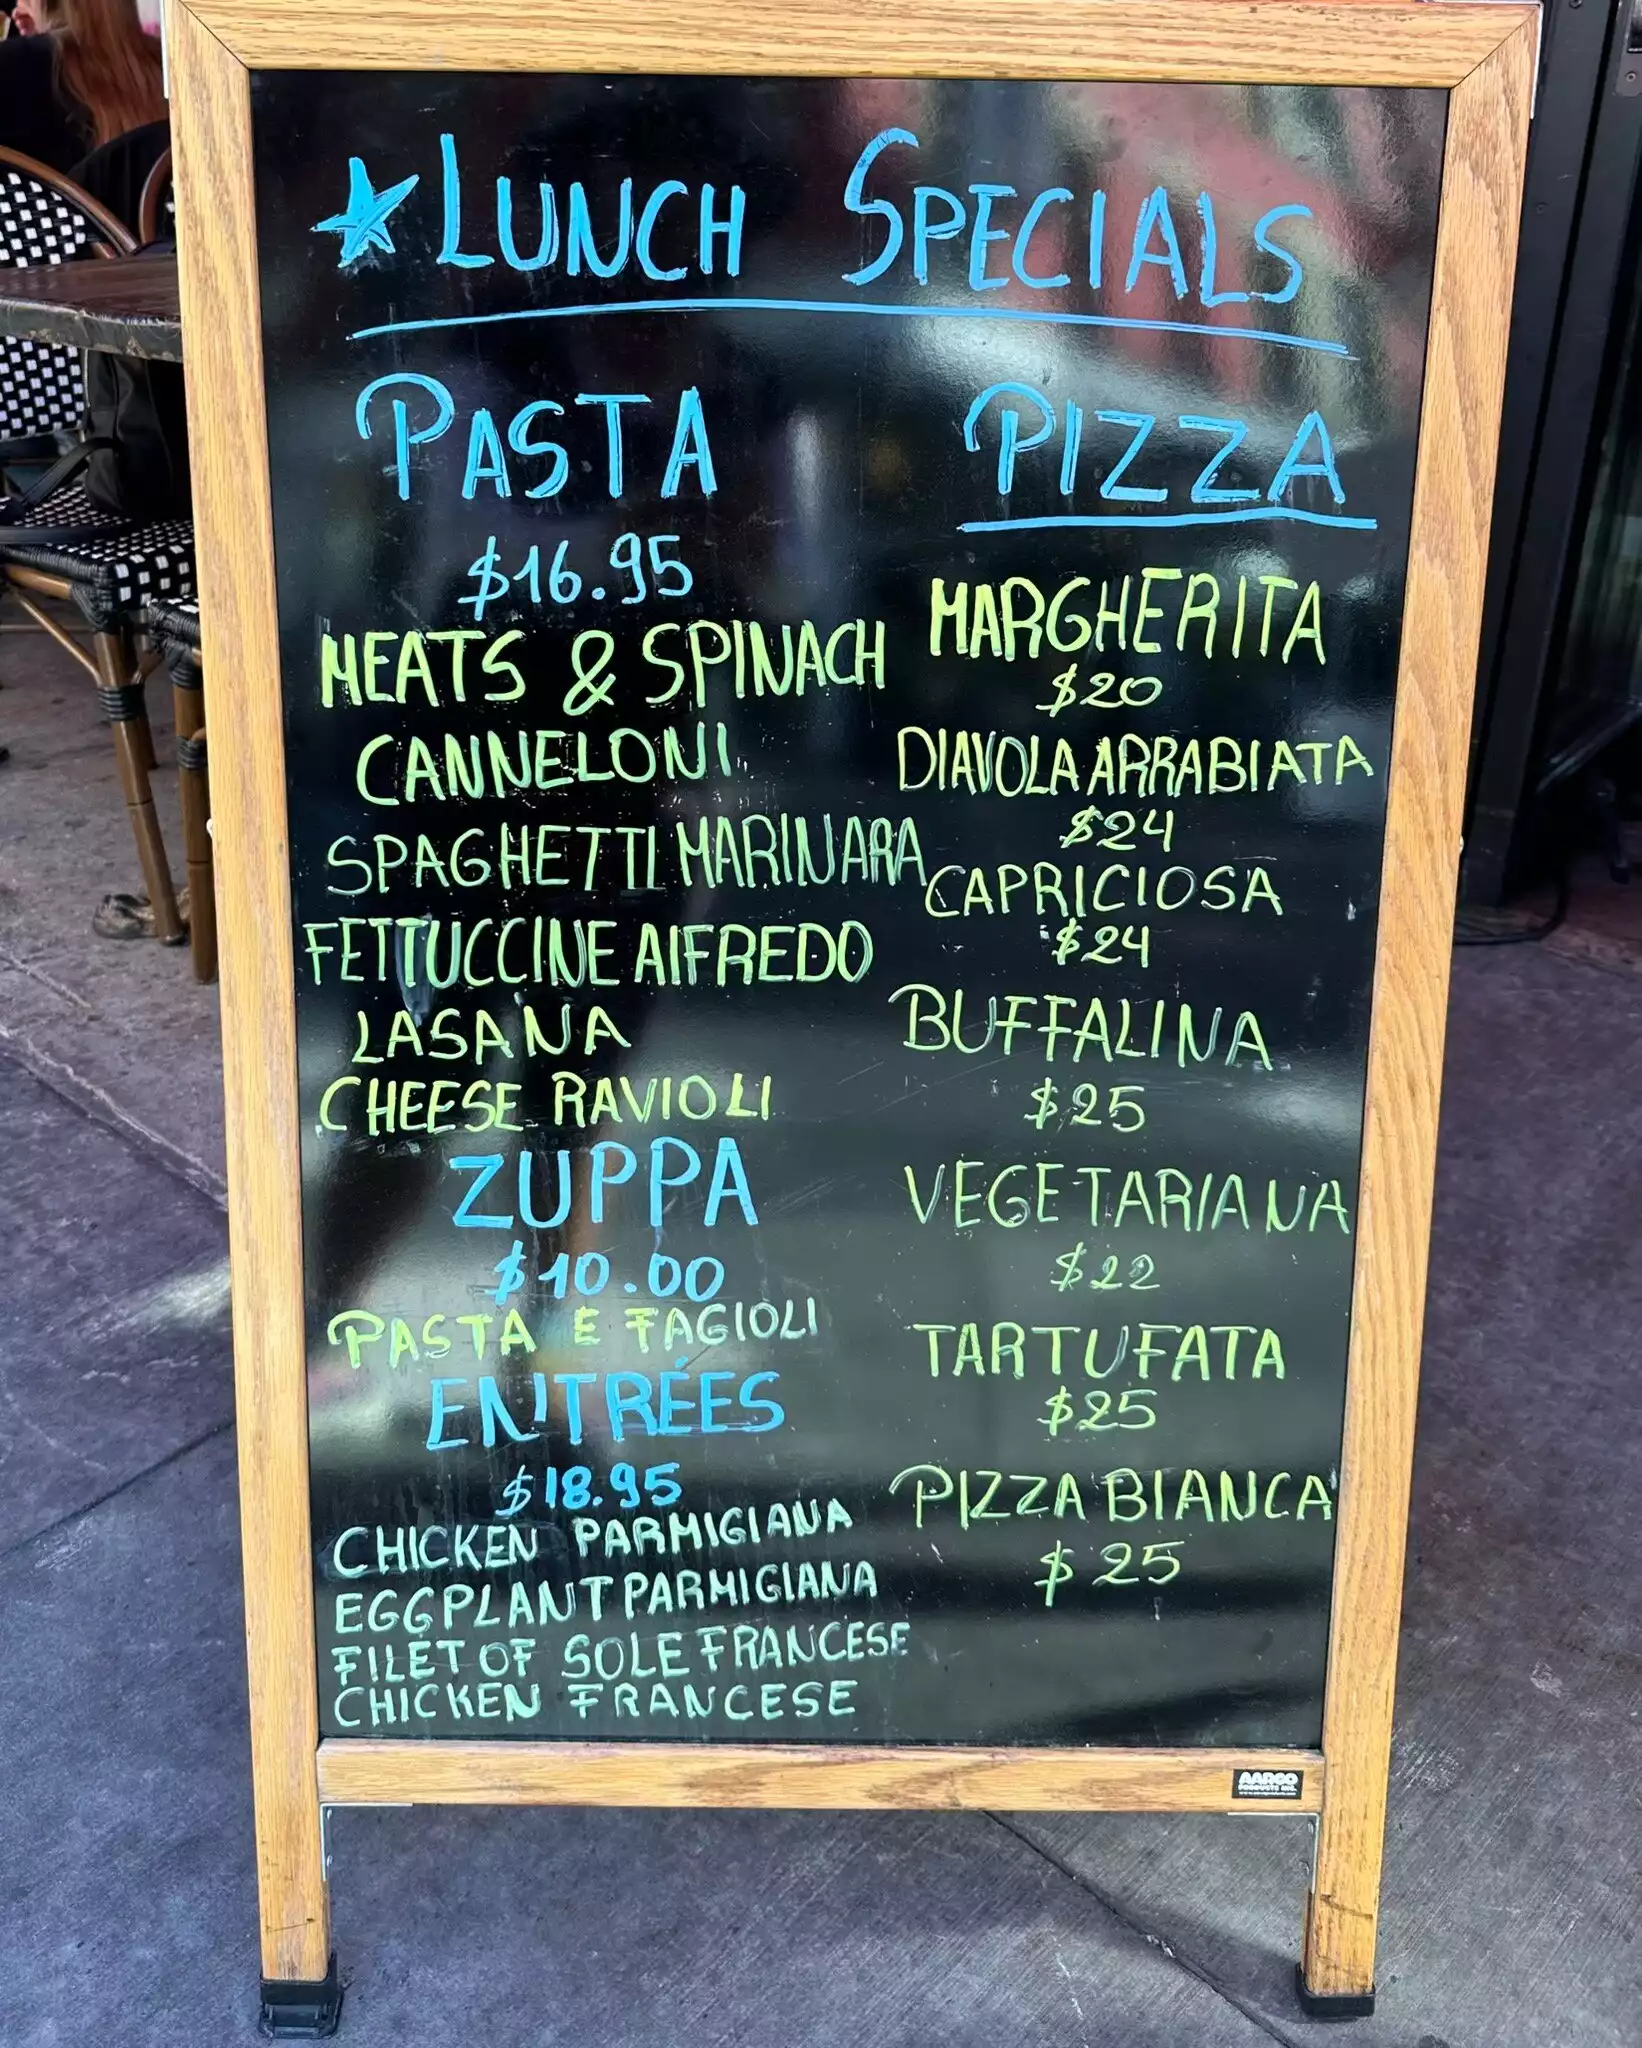 LUNCH SPECIALS
PASTA
$16.95
MEATS & SPINACH
CANNELONI
SPAGHETTI MARINARA
FETTUCCINE AIFREDO
LASANA
CHEESE RAVIOLI
ZUPPA
$10.00
PASTA E FAGIOLI
ENTRÉES
$18.95
CHICKEN PARMIGIANA
EGGPLANT PARMIGIANA
FILET OF SOLE FRANCESE
CHICKEN FRANCESE
PIZZA
MARGHERITA
$20
DIAVOLA ARRABIATA
$24
CAPRICIOSA
$24
BUFFALINA
$25
VEGETARIANA
$22
TARTUFATA
$25
PIZZA BIANCA
$25
AARCO
PRODUCTS INC.